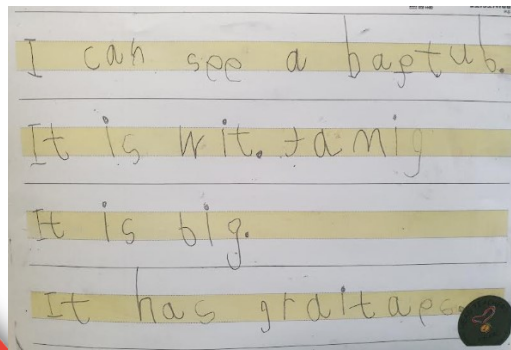 I can see a baftub.
It is wit. tanig
It is big.
It has graitaps.